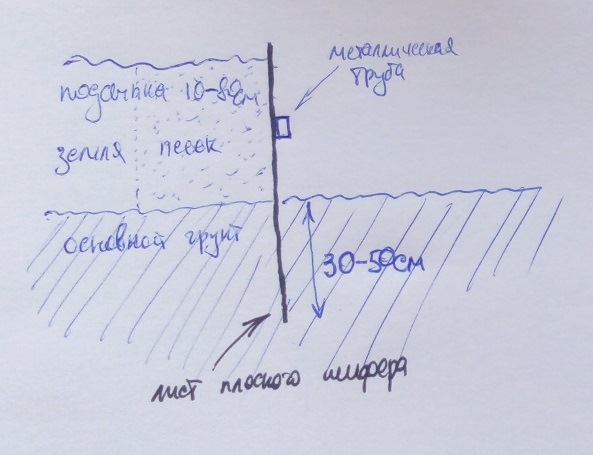 металлическая
труба
подсыпка 10-80см
земля песок
основной грунт
30-50см
лист плоского шифера